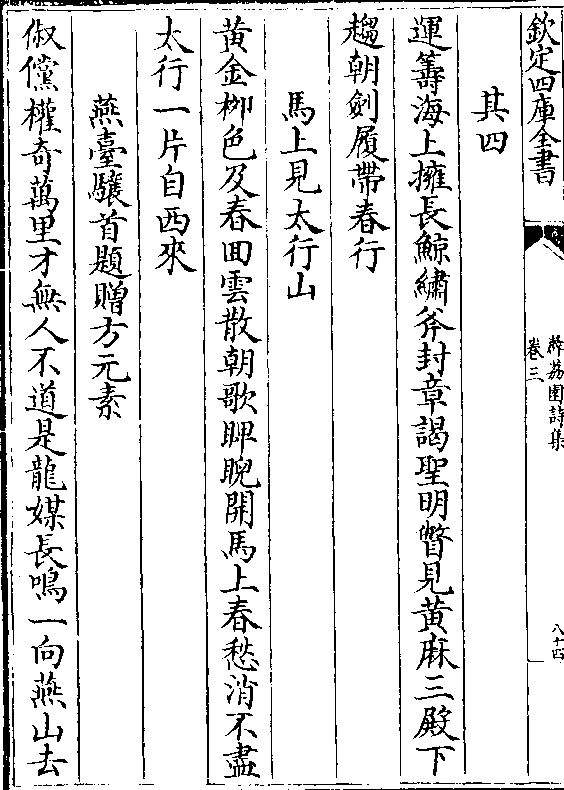 欽定四庫全書
薜荔園詩集
卷三
八十四
其四
運籌海上擁長鯨繡斧封章謁聖明瞥見黃麻三殿下
趨朝劍履帶春行
馬上見太行山
黃金栁色及春囬雲散朝歌睥睨開馬上春愁消不盡
太行一片自西來
燕臺驤首題贈方元素
俶儻權奇萬里才無人不道是龍媒長鳴一向燕山去